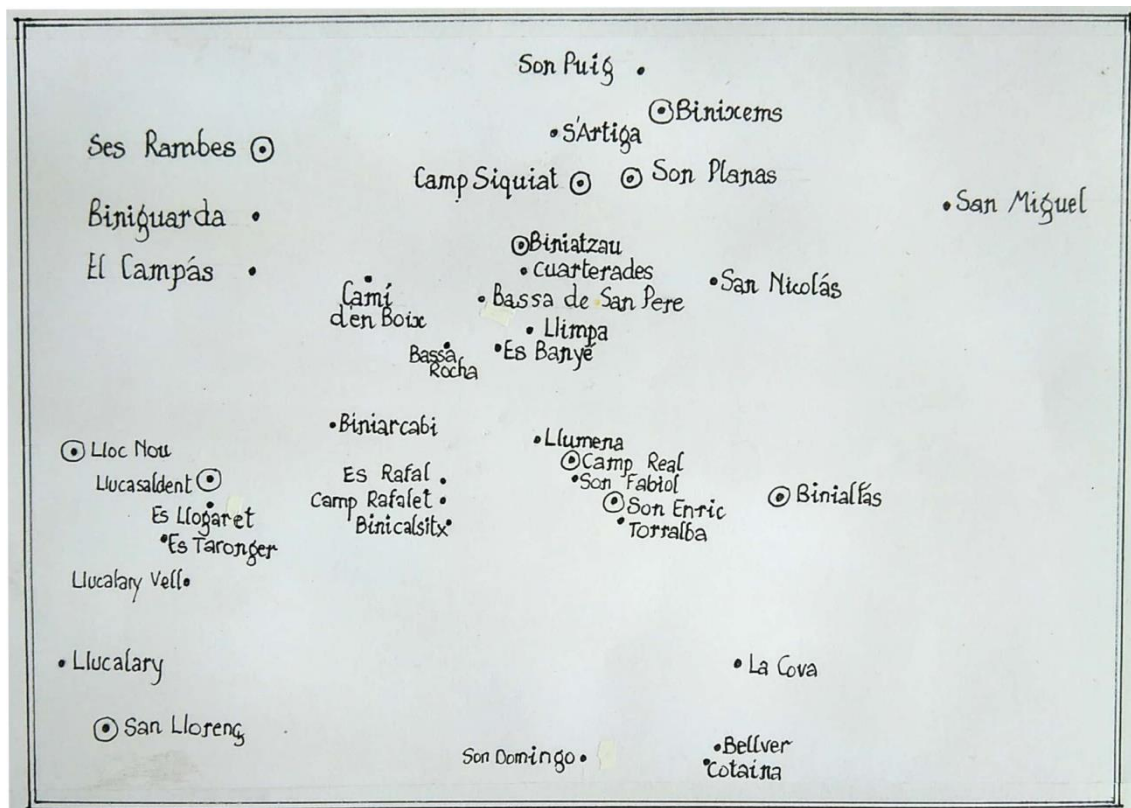 Son Puig
Binixems
S'Artiga
Ses Rambes
Camp Siquiat
Son Planas
San Miguel
Biniguarda
Biniatzau
El Campás
Cuarterades
San Nicolás
Camí
d'en Boix
Bassa de San Pere
Llimpa
Bassa
Rocha
Es Banyé
Biniarcabi
Llumena
Lloc Nou
Camp Real
Llucasaldent
Es Rafal
Son Fabiol
Binialfás
Camp Rafalet
Son Enric
Es Llogaret
Binicalsitx
Torralba
Es Taronger
Llucalary Vell
Llucalary
La Cova
San Llorenç
Son Domingo
Bellver
Cotaina